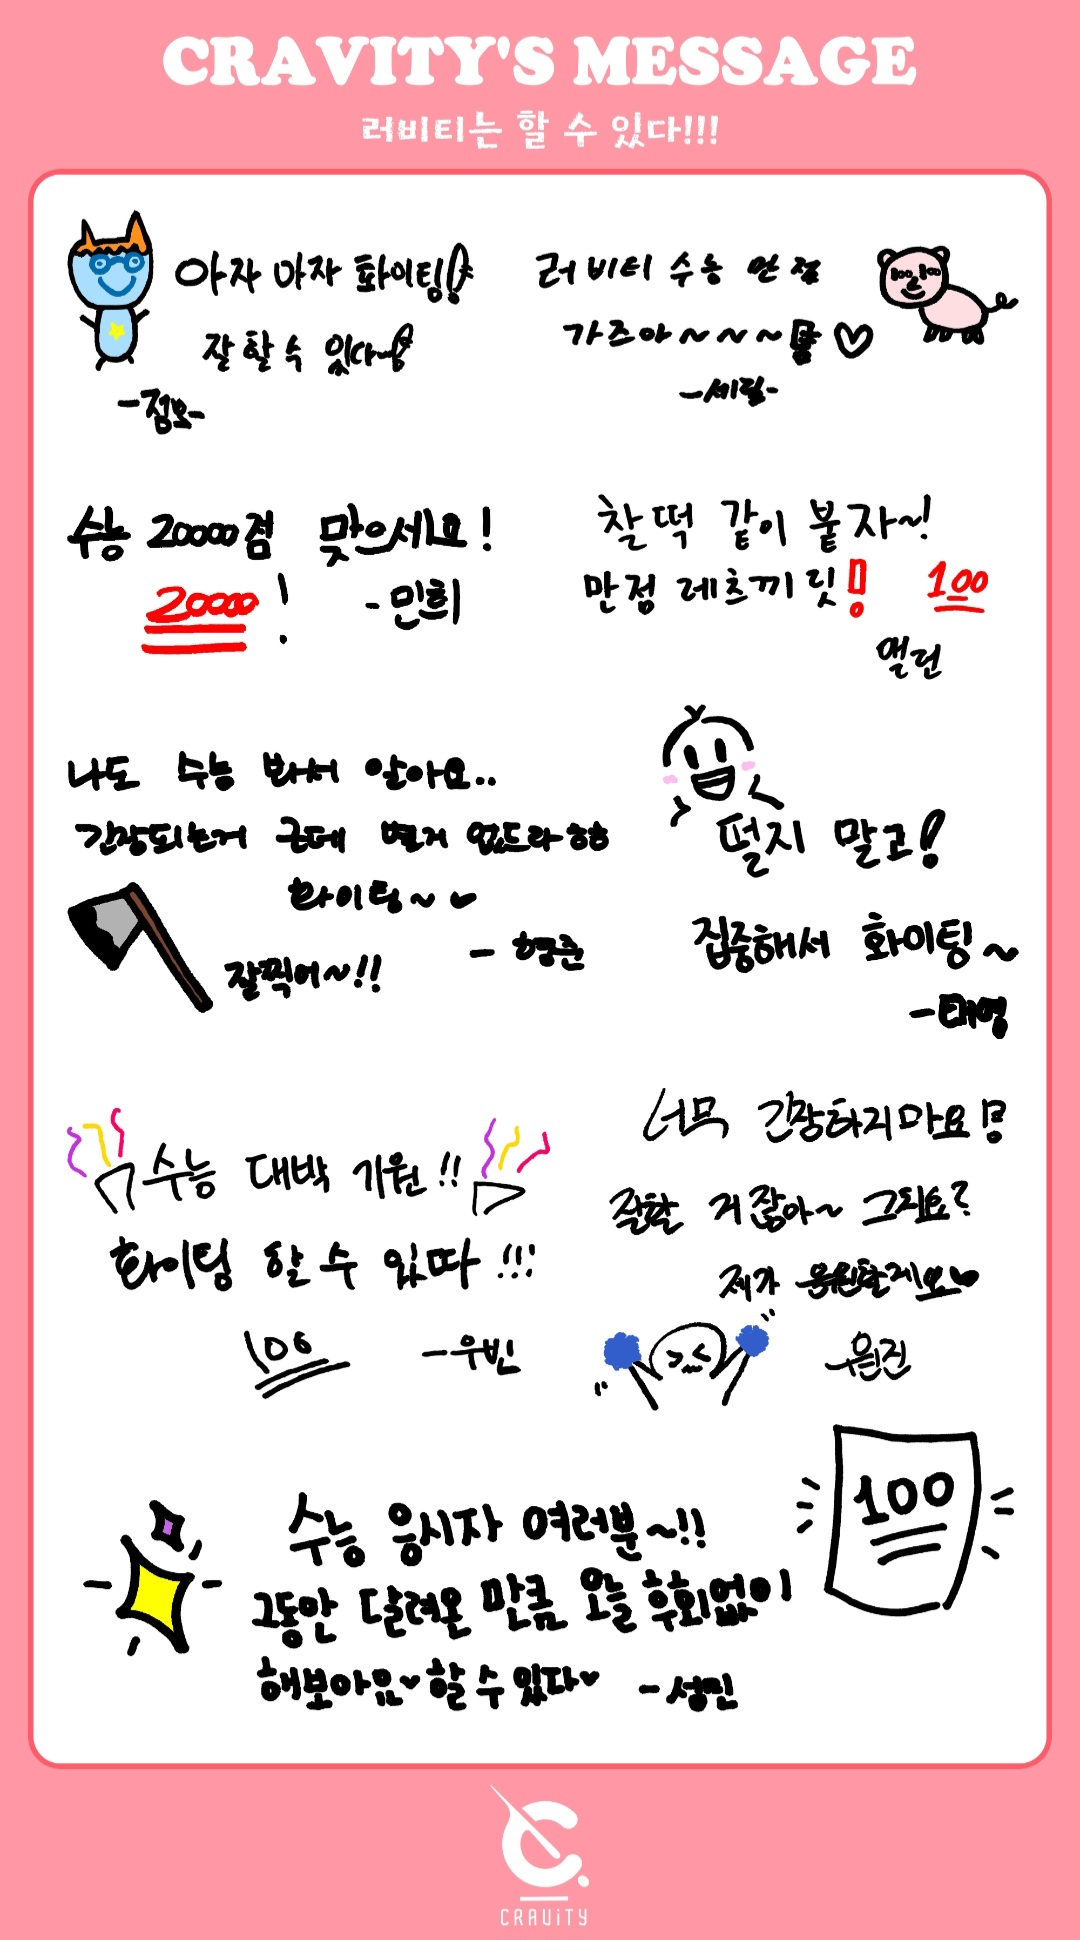 CRAVITY'S MESSAGE
러비티는 할 수 있다!!!
아자 아자 화이팅!
잘 할 수 있다~!
-정모-
러비티 수능 만점
가즈아~~~ ♡
-세림-
수능 20000점 맞으세요!
20000!
-민희
찰떡 같이 붙자~!
만점 레츠끼릿! 100
앨런
나도 수능 봐서 알아요..
긴장되는거 근데 별거 없드라ㅎㅎ
화이팅~♥
잘찍어~!!
- 형준
떨지 말고!
집중해서 화이팅~
-태영
수능 대박 기원!!
화이팅 할 수 있따!!!
100
-우빈
너무 긴장하지마요!
잘할 거잖아~ 그죠?
제가 응원할게요♥
원진
수능 응시자 여러분~!!
그동안 달려온 만큼 오늘 후회없이
해보아요♥할 수 있다♥
-성민
100
CRAViTY